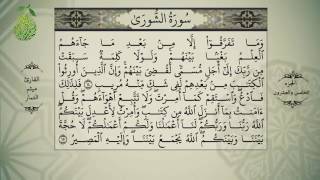 سُورَةُ الشُّورَىٰ
وَمَا تَفَرَّقُوٓا۟ إِلَّا مِنۢ بَعْدِ مَا جَآءَهُمُ
ٱلْعِلْمُ بَغْيًۢا بَيْنَهُمْ وَلَوْلَا كَلِمَةٌ سَبَقَتْ
مِن رَّبِّكَ إِلَىٰٓ أَجَلٍ مُّسَمًّى لَّقُضِىَ بَيْنَهُمْ وَإِنَّ ٱلَّذِينَ أُورِثُوا۟
ٱلْكِتَـٰبَ مِنۢ بَعْدِهِمْ لَفِى شَكٍّ مِّنْهُ مُرِيبٍ ١٤ فَلِذَٰلِكَ
فَٱدْعُ وَٱسْتَقِمْ كَمَآ أُمِرْتَ وَلَا تَتَّبِعْ أَهْوَآءَهُمْ وَقُلْ
ءَامَنتُ بِمَآ أَنزَلَ ٱللَّهُ مِن كِتَـٰبٍ وَأُمِرْتُ لِأَعْدِلَ بَيْنَكُمُ
ٱللَّهُ رَبُّنَا وَرَبُّكُمْ لَنَآ أَعْمَـٰلُنَا وَلَكُمْ أَعْمَـٰلُكُمْ لَا حُجَّةَ
بَيْنَنَا وَبَيْنَكُمُ ٱللَّهُ يَجْمَعُ بَيْنَنَا وَإِلَيْهِ ٱلْمَصِيرُ ١٥
القارئ
ميثم
التمار
الجزء
الخامس والعشرون